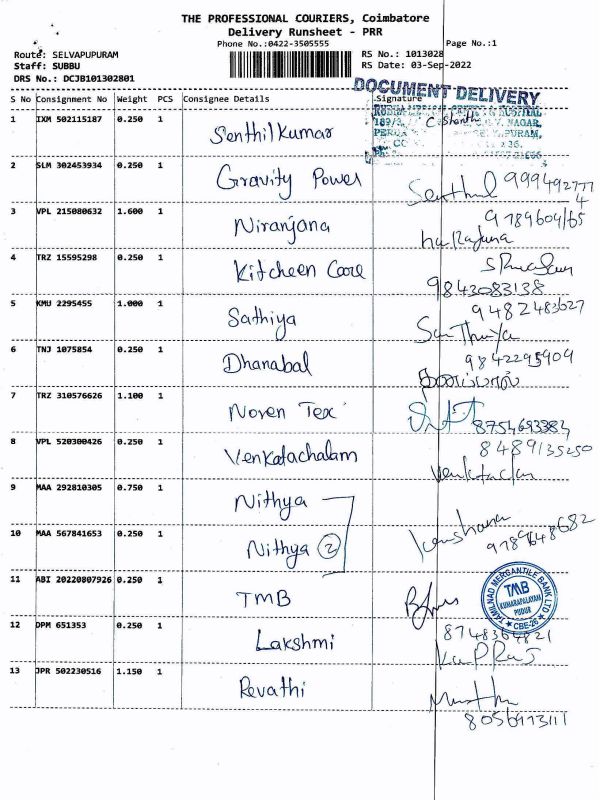 THE PROFESSIONAL COURIERS, Coimbatore
Delivery Runsheet - PRR
Phone No.:0422-3505555
Page No.:1
Route: SELVAPUPURAM
RS No.: 1013028
Staff: SUBBU
RS Date: 03-Sep-2022
DRS No.: DCJB101302801
DOCUMENT DELIVERY
S No Consignment No Weight PCS Consignee Details Signature
1 IXM 502115187 0.250 1 Senthilkumar
2 SLM 302453934 0.250 1 Gravity Power Senthil 9994927774
3 VPL 215080632 1.600 1 Niranjana 9789604165
4 TRZ 15595298 0.250 1 Kitcheen Care 9843083138
5 KMU 2295455 1.000 1 Sathiya 9482483627
6 TNJ 1075854 0.250 1 Dhanabal 9842295909
7 TRZ 310576626 1.100 1 Noven Tex 8754693384
8 VPL 520300426 0.250 1 Venkatachalam 8489135250
9 MAA 292810305 0.750 1 Nithya
10 MAA 567841653 0.250 1 Nithya 2 9789648682
11 ABI 20220807926 0.250 1 TMB
TAMILNAD MERCANTILE BANK LTD
TMB
KUMARAPALAYAM
PUDUR
CBE-26
12 DPM 651353 0.250 1 Lakshmi 8748364821
13 JPR 502230516 1.150 1 Revathi
8056973111